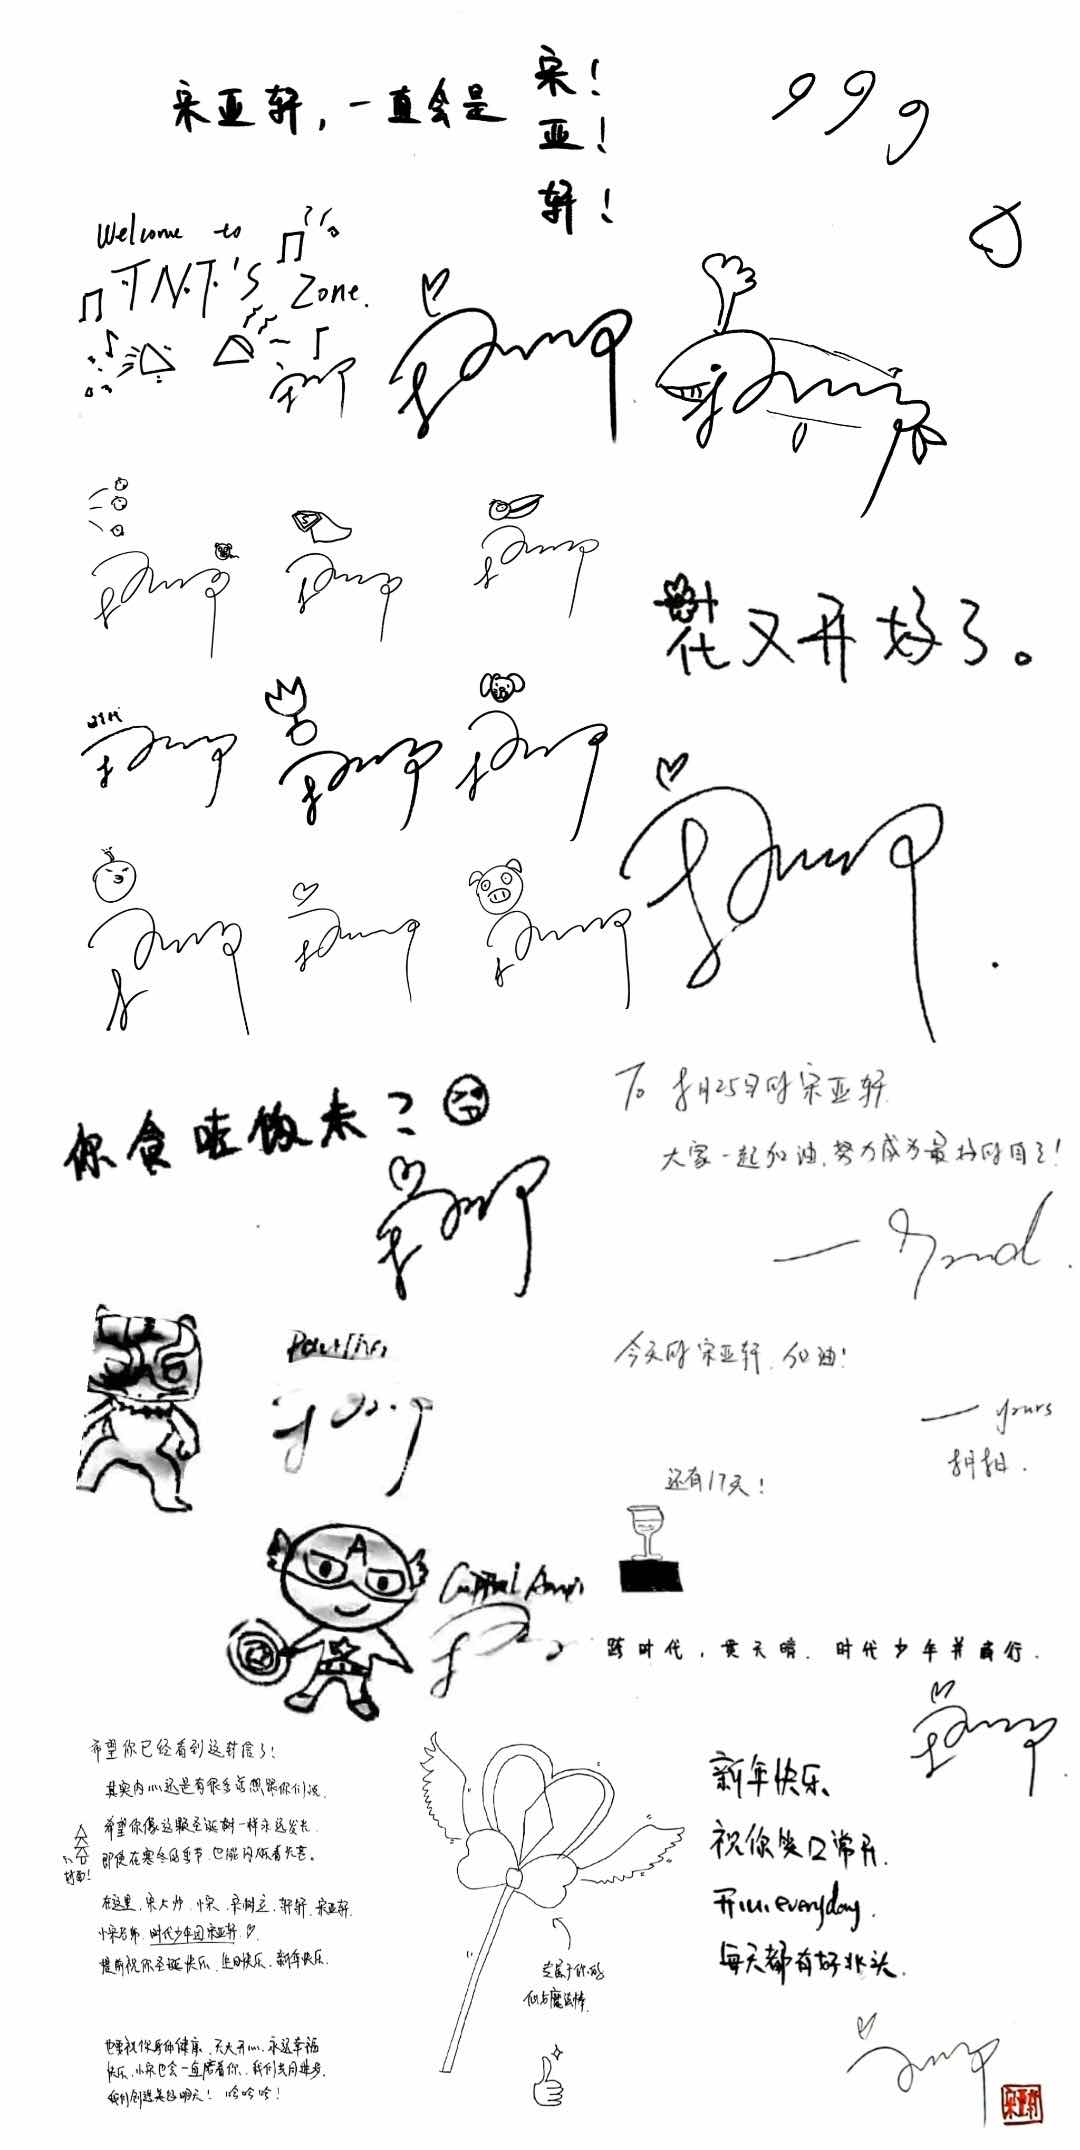 宋亚轩，一直会是
宋！
亚！
轩！
999
Welcome to
T.N.T.'S
Zone.
时代
花又开好了。
你食咗饭未？
To 8月25日的宋亚轩
大家一起加油，努力成为最好的自己！
今天的宋亚轩，加油！
— yours
还有17天！
A
跨时代，贯天晴，时代少年并肩行.
希望你已经看到这封信了！
其实内心还是有很多话想跟你们说.
希望你像这颗圣诞树一样永远发光.
即使在寒冬的季节，也能闪烁着光芒。
封面！
在这里，宋大帅、小宋、宋树立、轩轩、宋亚轩、
小宋名师、时代少年团宋亚轩
提前祝你圣诞快乐、生日快乐、新年快乐.
也要祝你身体健康、天天开心、永远幸福
快乐，小宋也会一直陪着你，我们共同进步，
我们创造美好明天！哈哈哈！
专属于你的
仙女魔法棒
新年快乐
祝你笑口常开.
开心everyday.
每天都有好兆头.
宋亚轩